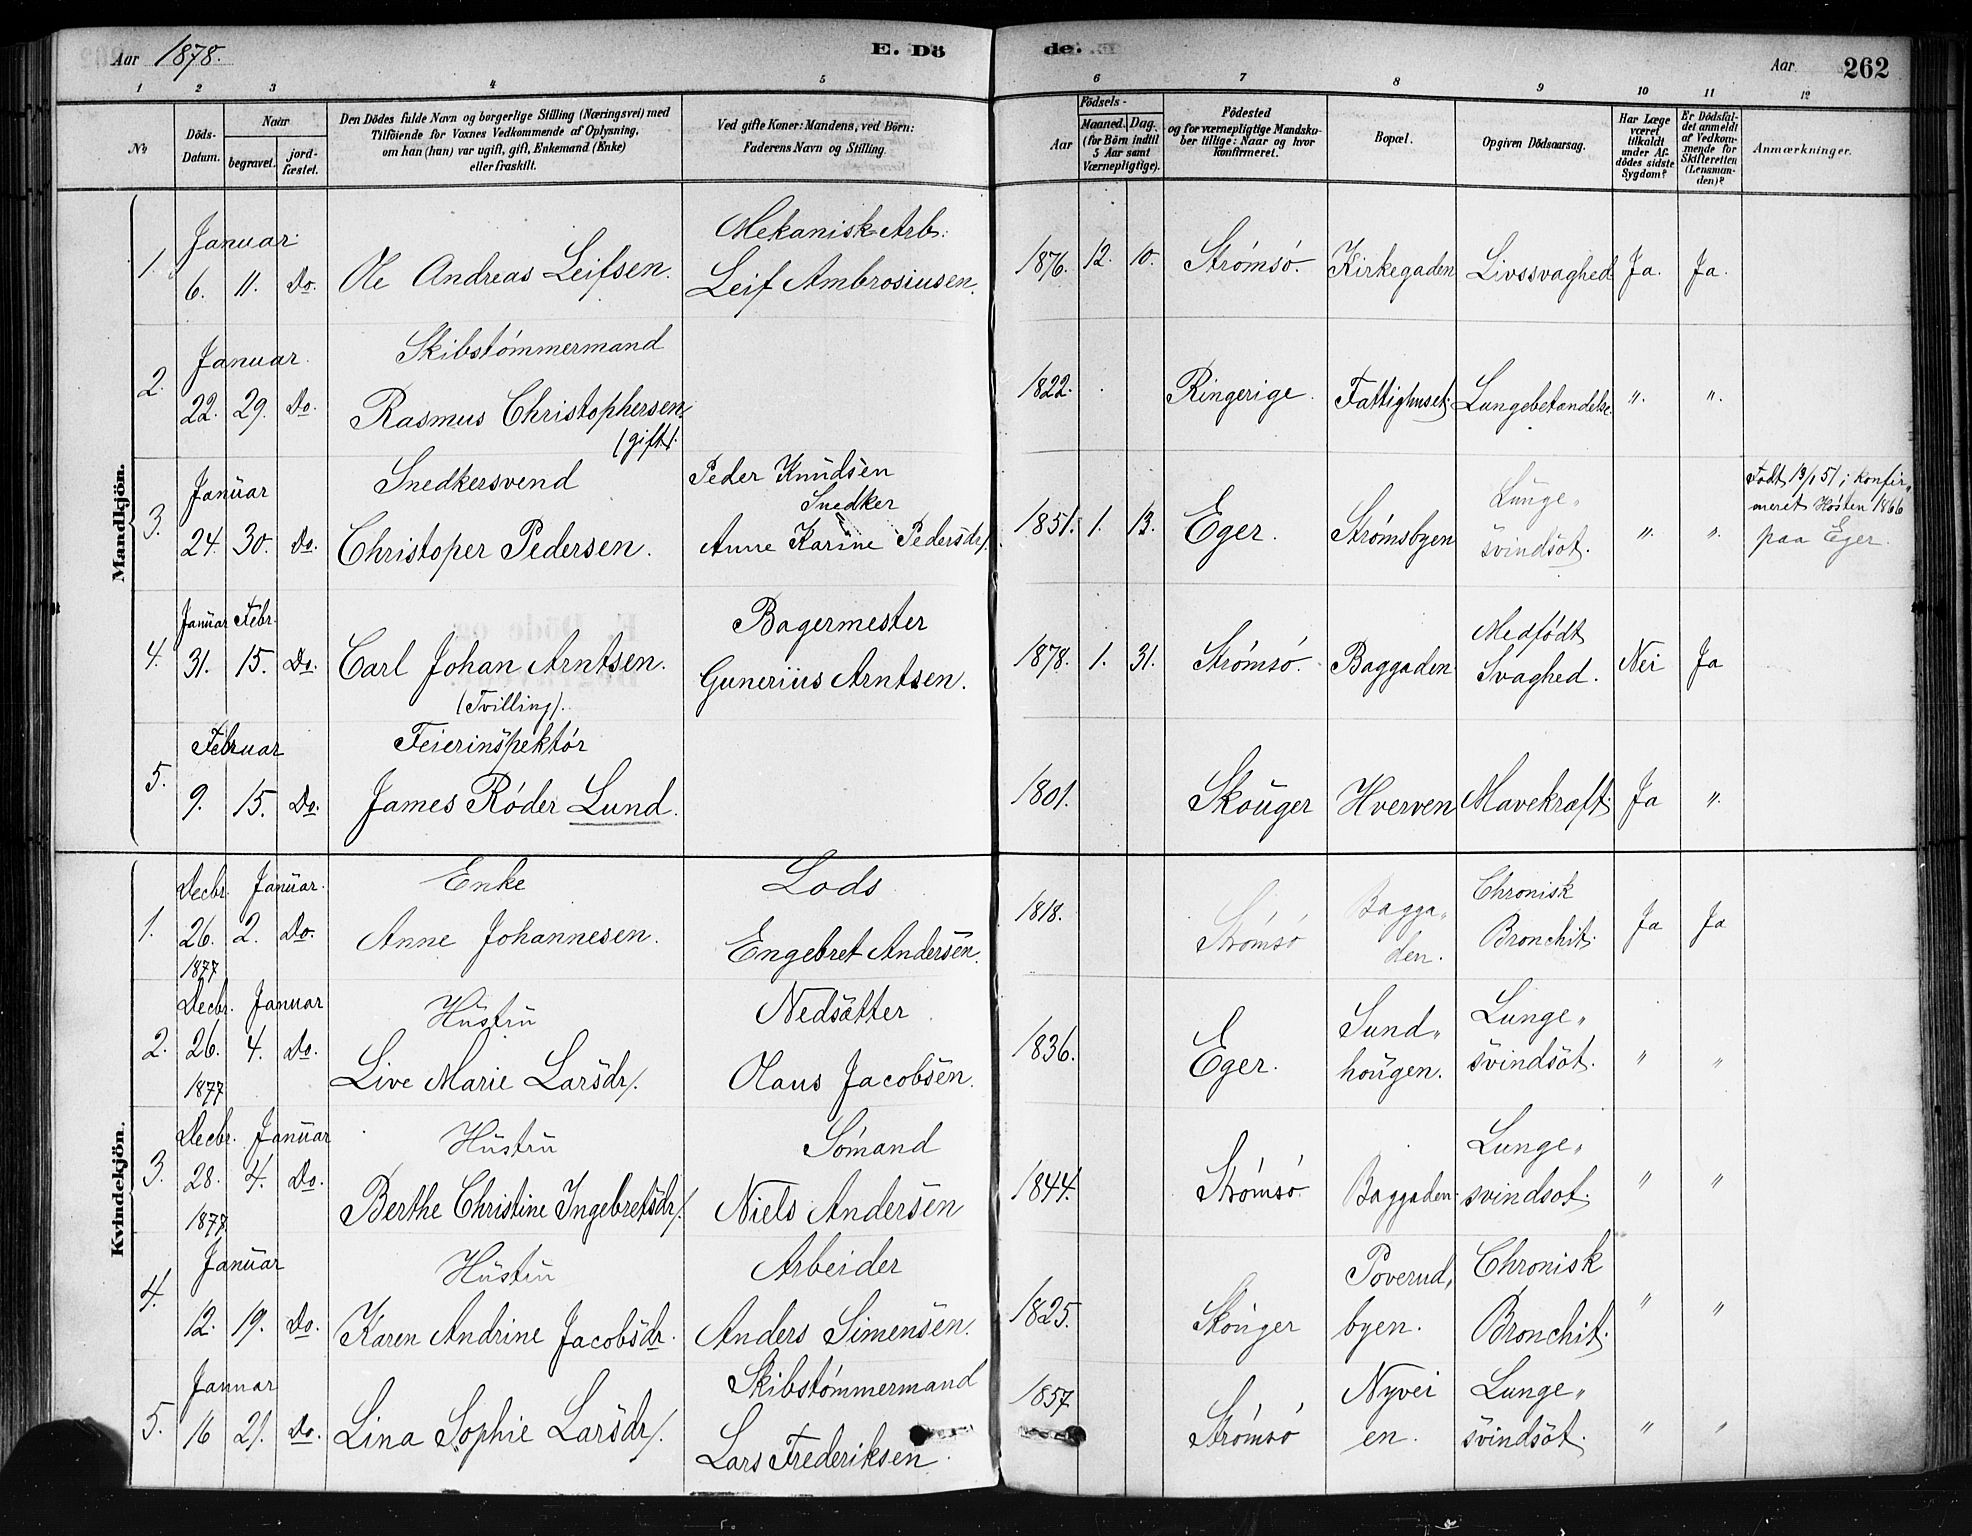 Aar 1878. E. Dö de. Aar 262
1 2 3 4 5 6 7 8 9 10 11 12
No Döds-Datum. Naar begravet. jord-fæstet. Den Dödes fulde Navn og borgerlige Stilling (Næringsvei) med Tilföiende for Voxnes Vedkommende af Oplysning, om han (hun) var ugift, gift, Enkemand (Enke) eller fraskilt. Ved gifte Koner: Mandens, ved Børn: Faderens Navn og Stilling. Aar Födsels- Maaned. Dag. (for Börn indtil 5 Aar samt Værnepligtige). Födested og for værnepligtige Mandskaber tillige: Naar og hvor Konfirmeret. Bopæl. Opgiven Dödsaarsag. Har Læge været tilkaldt under Afdödes sidste Sygdom? Er Dödsfaldet anmeldt af Vedkommende for Skifteretten (Lensmanden)? Anmærkninger.
Mandkjön.
Januar Mekanisk Arb:
1. 6. 11. Do. Ole Andreas Leifsen. Leif Ambrosiusen. 1876. 12. 10. Strømsø. Kirkegaden Livssvaghed Ja. Ja.
Januar. Skibstømmermand
2. 22. 29. Do. Rasmus Christophersen 1822. Ringerige. Fattighuset. Lungebetændelse. ". ".
(gift).
Januar Snedkersvend Peder Knudsen Lunge„ Født 13/1 51; konfir„
Snedker meret Høsten 1866
3. 24. 30. Do. Christoper Pedersen. Anne Karine Pedersdr/. 1851. 1. 13. Eger. Strømsbyen svindsot. ". ". paa Eger.
Januar Febr. Bagermester Medfødt
4. 31. 15. Do. Carl Johan Arntsen. Gunerius Arntsen. 1878. 1. 31. Strømsø. Baggaden Svaghed. Nei Ja
(Tvilling).
Februar Feierinspektør
5. 9. 15. Do. James Røder Lund. 1801. Skouger Hverven Mavekræft. Ja ".
Kvindekjön.
Decbr. Januar. Enke Lods Bagga„ Chronisk
1. 26. 2. Do. Anne Johannesen. Engebret Andersen. 1818. Strømsø den. Bronchit. Ja Ja
1877
Decbr. Januar Hustru Nedsætter Sund„ Lunge„
2. 26. 4. Do. Live Marie Larsdr/. Olaus Jacobsen. 1836. Eger. hougen. svindsot. " "
1877
Decbr. Januar Hustru Sømand Lunge„
3. 28. 4. Do. Berthe Christine Ingebretsdr/. Niels Andersen 1844. Strømsø. Baggaden. svindsot. " "
1877
Januar Hustru Arbeider Poverud„ Chronisk
4. 12. 19. Do. Karen Andrine Jacobsdr. Anders Simensen. 1825. Skouger byen. Bronchit. " "
Januar Skibstømmermand Nyvei Lunge„
5. 16 21. Do. Lina Sophie Larsdr/. Lars Frederiksen. 1857 Strømsø en. svindsot. " "